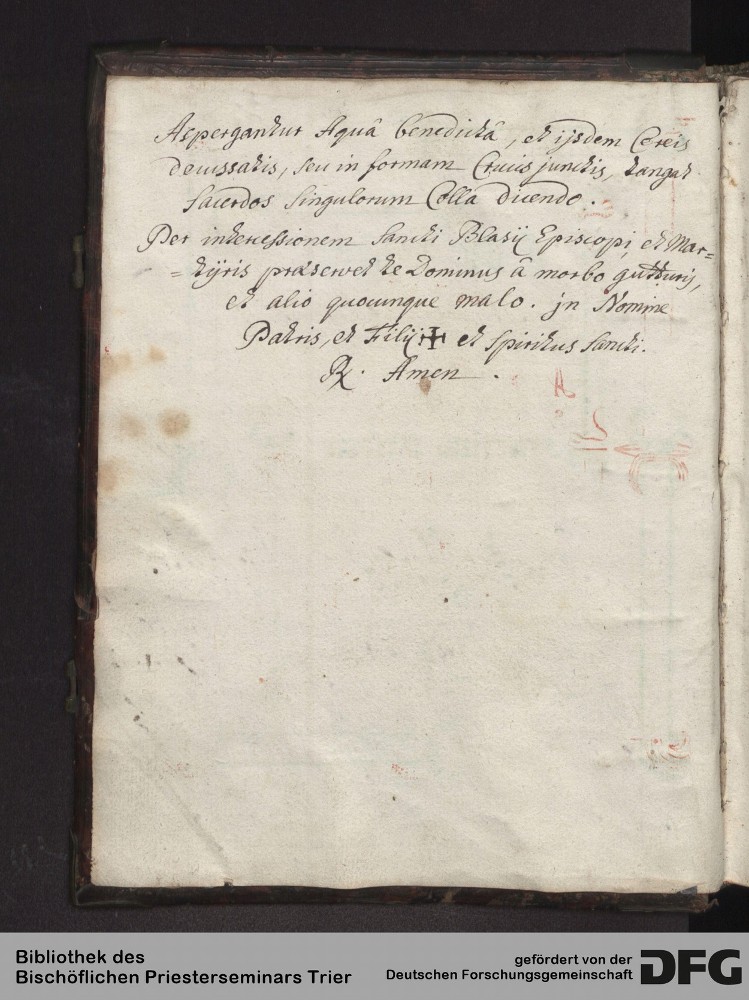 Aspergantur Aquâ benedictâ, et ijsdem Cereis
decussatis, seu in formam Crucis junctis, tangat
Sacerdos singulorum Colla dicendo.
Per intercessionem Sancti Blasij Episcopi, et Mar=
=tÿris præservet te Dominus â morbo gutturis,
et alio quocunque malo. jn Nomine
Patris, et Filij ✠ et Spiritus Sancti.
℟. Amen.
Bibliothek des
Bischöflichen Priesterseminars Trier
gefördert von der
Deutschen Forschungsgemeinschaft
DFG